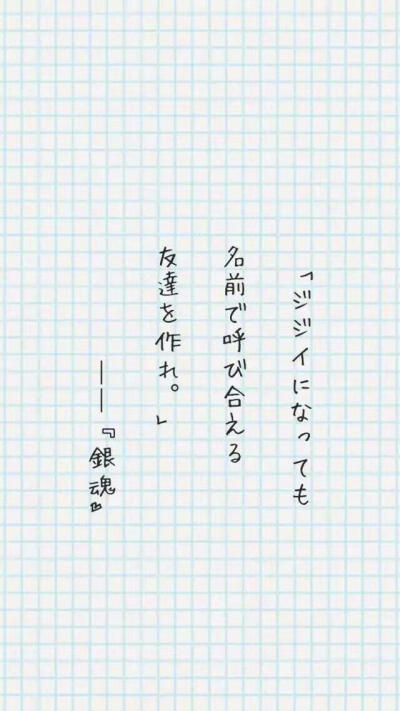 「ジジイになっても
名前で呼び合える
友達を作れ。」
——『銀魂』